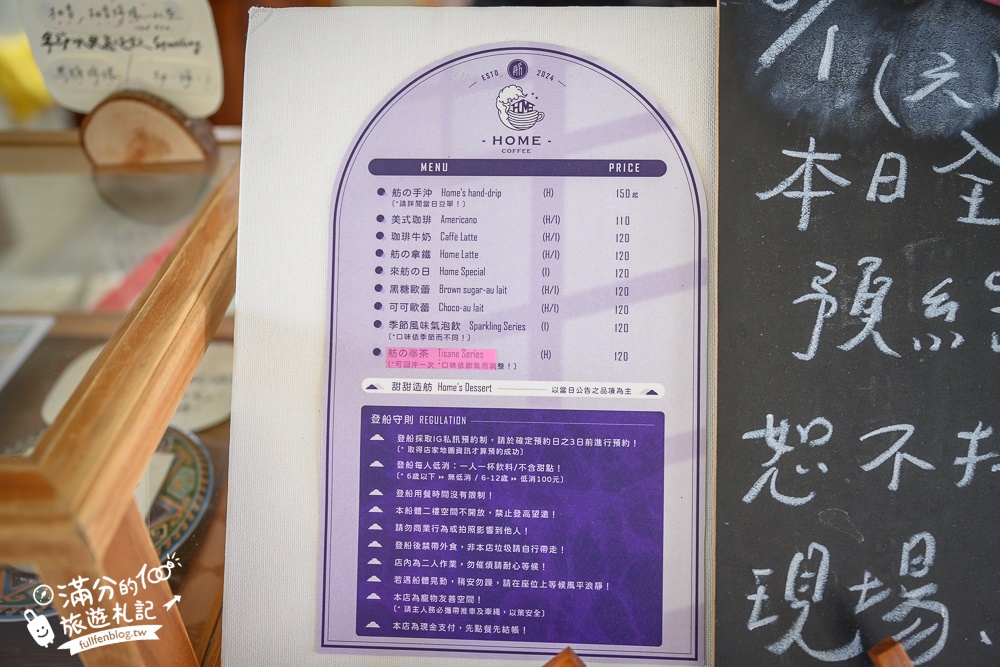 ESTD 舫 2024
HOME
- HOME -
COFFEE
MENU PRICE
舫の手沖 Home's hand-drip (H) 150起
(*請詳閱當日豆單！)
美式咖啡 Americano (H/I) 110
珈琲牛奶 Caffè Latte (H/I) 120
舫の拿鐵 Home Latte (H/I) 120
來舫の日 Home Special (I) 120
黑糖歐蕾 Brown sugar-au lait (H/I) 120
可可歐蕾 Choco-au lait (H/I) 120
季節風味氣泡飲 Sparkling Series (I) 120
(*口味依季節而不同！)
舫の舉茶 Tisane Series (H) 120
(*可回沖一次 *口味依節氣而調整！)
甜甜造舫 Home's Dessert 以當日公告之品項為主
登船守則 REGULATION
登船採取IG私訊預約制，請於確定預約日之3日前進行預約！
(* 取得店家地圖資訊才算預約成功)
登船每人低消：一人一杯飲料/不含甜點！
(* 6歲以下 ▸▸ 無低消 / 6-12歲 ▸▸ 低消100元)
登船用餐時間沒有限制！
本船體二樓空間不開放，禁止登高望遠！
請勿商業行為或拍照影響到他人！
登船後禁帶外食，非本店垃圾請自行帶走！
店內為二人作業，勿催煩請耐心等候！
若遇船體晃動，稍安勿躁，請在座位上等候風平浪靜！
本店為寵物友善空間！
(* 請主人務必攜帶推車及牽繩，以策安全)
本店為現金支付，先點餐先結帳！
(六)
本日全
預約
恕不
現場
滿分的100
旅遊札記
fullfenblog.tw